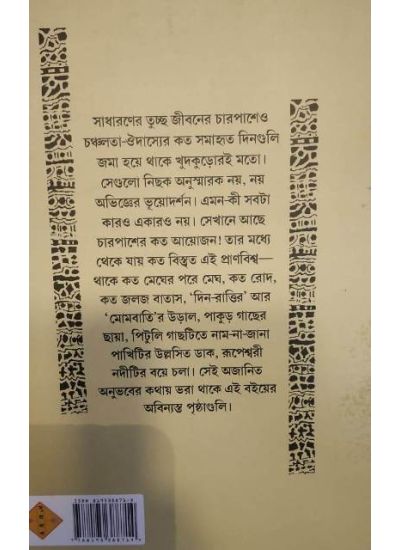 সাধারণের তুচ্ছ জীবনের চারপাশেও
চঞ্চলতা-ঔদাস্যের কত সমাহৃত দিনগুলি
জমা হয়ে থাকে খুদকুড়োরই মতো।
সেগুলো নিছক অনুস্মারক নয়, নয়
অভিজ্ঞের ভূয়োদর্শন। এমন-কী সবটা
কারও একারও নয়। সেখানে আছে
চারপাশের কত আয়োজন! তার মধ্যে
থেকে যায় কত বিস্তৃত এই প্রাণবিশ্ব—
থাকে কত মেঘের পরে মেঘ, কত রোদ,
কত জলজ বাতাস, ‘দিন-রাত্তির’ আর
‘মোমবাতি’র উড়াল, পাকুড় গাছের
ছায়া, পিটুলি গাছটিতে নাম-না-জানা
পাখিটির উল্লসিত ডাক, রূপেশ্বরী
নদীটির বয়ে চলা। সেই অজানিত
অনুভবের কথায় ভরা থাকে এই বইয়ের
অবিন্যস্ত পৃষ্ঠাগুলি।